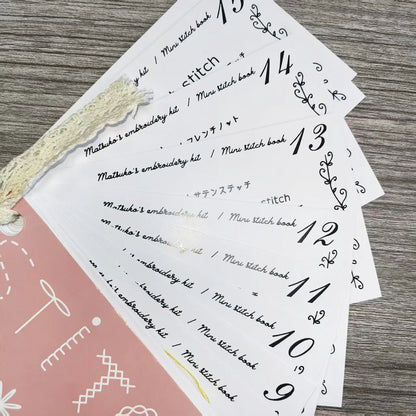 kit / Mini stitch book 15
stitch
Matsuko's embroidery kit / Mini stitch book 14
フレンチノット
Matsuko's embroidery kit / Mini stitch book 13
サテンステッチ
stitch
embroidery kit / Mini stitch book 12
embroidery kit / Mini stitch book 11
embroidery kit / Mini stitch book 10
embroidery kit / Mini stitch book 9